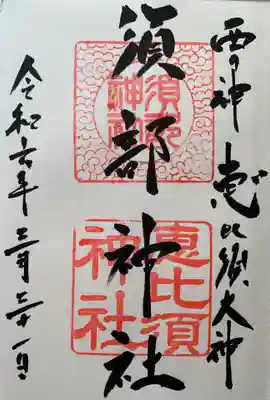 西の神 恵比須大神
須部神社
須部神社
恵比須神社
令和六年三月二十一日